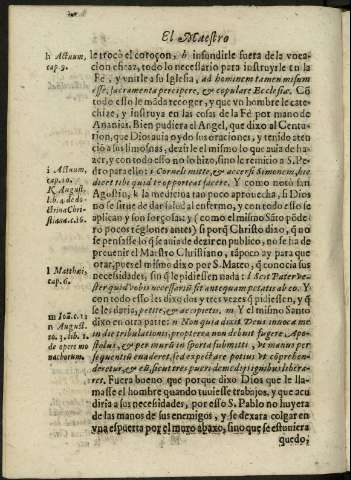 El Maestro
h Actuum,
cap. 9.
le trocò el coroçon, ò insundirle fuera de la voca-
cion eficaz, todo lo necessario para instruyrle en la
Fè, y vnirle a su Iglesia, ad hominem tamen misum
esse, sacramenta percipere, & copulare Ecclesiæ. Cõ
todo esso le mãda recoger, y que vn hombre le cate-
chize, y instruya en las cosas de la Fè por mano de
Ananias. Bien pudiera el Angel, que dixo al Centu-
rion, que Dios auia oydo sus oraciones, y tenido aten-
ciõ a sus limosnas, dezirle el mismo lo que auia de ha-
zer, y con todo esso no lo hizo, sino le remitio a S. Pe-
i Actuum,
cap. 10.
dro para ello: i Corneli mitte, & accersi Simonem, hic
dicet tibi quid te oporteat facere. Y como notò san
K August.
li. 4. de do-
ctrina Chri-
stiana. c. 16.
Agostin, k la medicina tan poco aprouecha, si Dios
no se sirue de dar salud al enfermo, y con todo esso se
aplican y son forçosas: y (como el mismo Sãto põde-
ro pocos rēglones antes) si porq̃ Christo dixo, que no
se pensasse lo q̃ se auia de dezir en publico, no se ha de
preuenir el Maestro Christiano, tãpoco ay para que
orar, pues el mismo dixo por S. Mateo, q̃ conocia sus
l Matthæi,
cap. 6.
necessidades, sin q̃ le pidiessen nada: l Scit Pater ve-
ster quid vobis necessariū sit antequam petatis ab eo. Y
con todo esso les dixo dos y tres vezes q̃ pidiessen, y q̃
m Ioã. c. 12
se les daria, petite, & accipietis. m Y el mismo Santo
n August.
to. 3. lib. 1.
de opere mo
nachorum.
dixo en otra parte: n Non quia dixit Deus inuoca me
in die tribulationis, propterea non debuit fugere Apos-
tolus, & per murū in sporta submitti, vt manus per
sequentiū euaderet, sed expectare potius vt cōprehen-
deretur, & eū, sicut tres pueri de medijs ignibus libera-
ret. Fuera bueno que porque dixo Dios que le lla-
masse el hombre quando tuuiesse trabajos, y que acu
diria a sus necessidades, por esso S. Pablo no huyera
de las manos de sus enemigos, y se dexara colgar en
vna espuerta por el muro abaxo, sino que se estouiera
quedo,